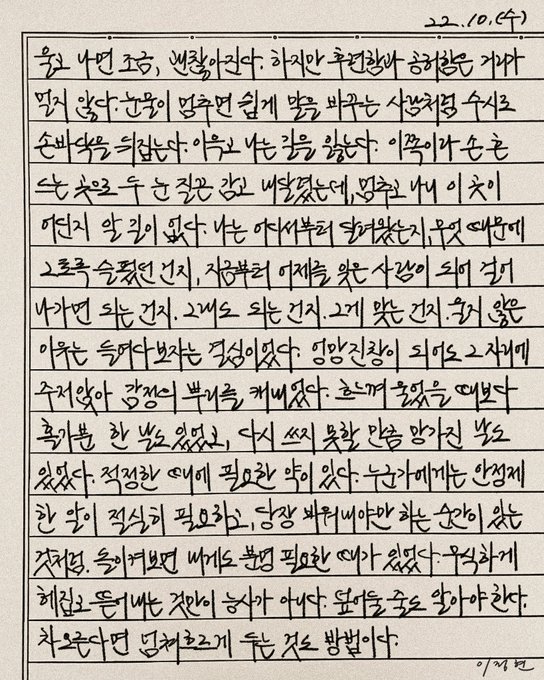 22.10.(수)
울고 나면 조금, 괜찮아진다. 하지만 후련함과 공허함은 거리가
멀지 않다. 눈물이 멈추면 쉽게 말을 바꾸는 사람처럼 수시로
손바닥을 뒤집는다. 이윽고 나는 길을 잃는다. 이쪽이라 손 흔
드는 곳으로 두 눈 질끈 감고 내달렸는데, 멈추고 나니 이 곳이
어딘지 알 길이 없다. 나는 어디서부터 달려왔는지, 무엇 때문에
그토록 슬펐던 건지, 지금부터 어제를 잊은 사람이 되어 걸어
나가면 되는 건지. 그래도 되는 건지. 그게 맞는 건지. 울지 않은
이유는 들여다보자는 결심이었다. 엉망진창이 되어도 그 자리에
주저앉아 감정의 뿌리를 캐내었다. 흐느껴 울었을 때보다
홀가분 한 날도 있었고, 다시 쓰지 못할 만큼 망가진 날도
있었다. 적정한 때에 필요한 약이 있다. 누군가에게는 안정제
한 알이 절실히 필요하고, 당장 비워내야만 하는 순간이 있는
것처럼. 돌이켜보면 내게도 분명 필요한 때가 있었다. 무식하게
헤집고 뜯어내는 것만이 능사가 아니다. 덮어둘 줄도 알아야 한다.
차오른다면 넘쳐흐르게 두는 것도 방법이다.
이정현